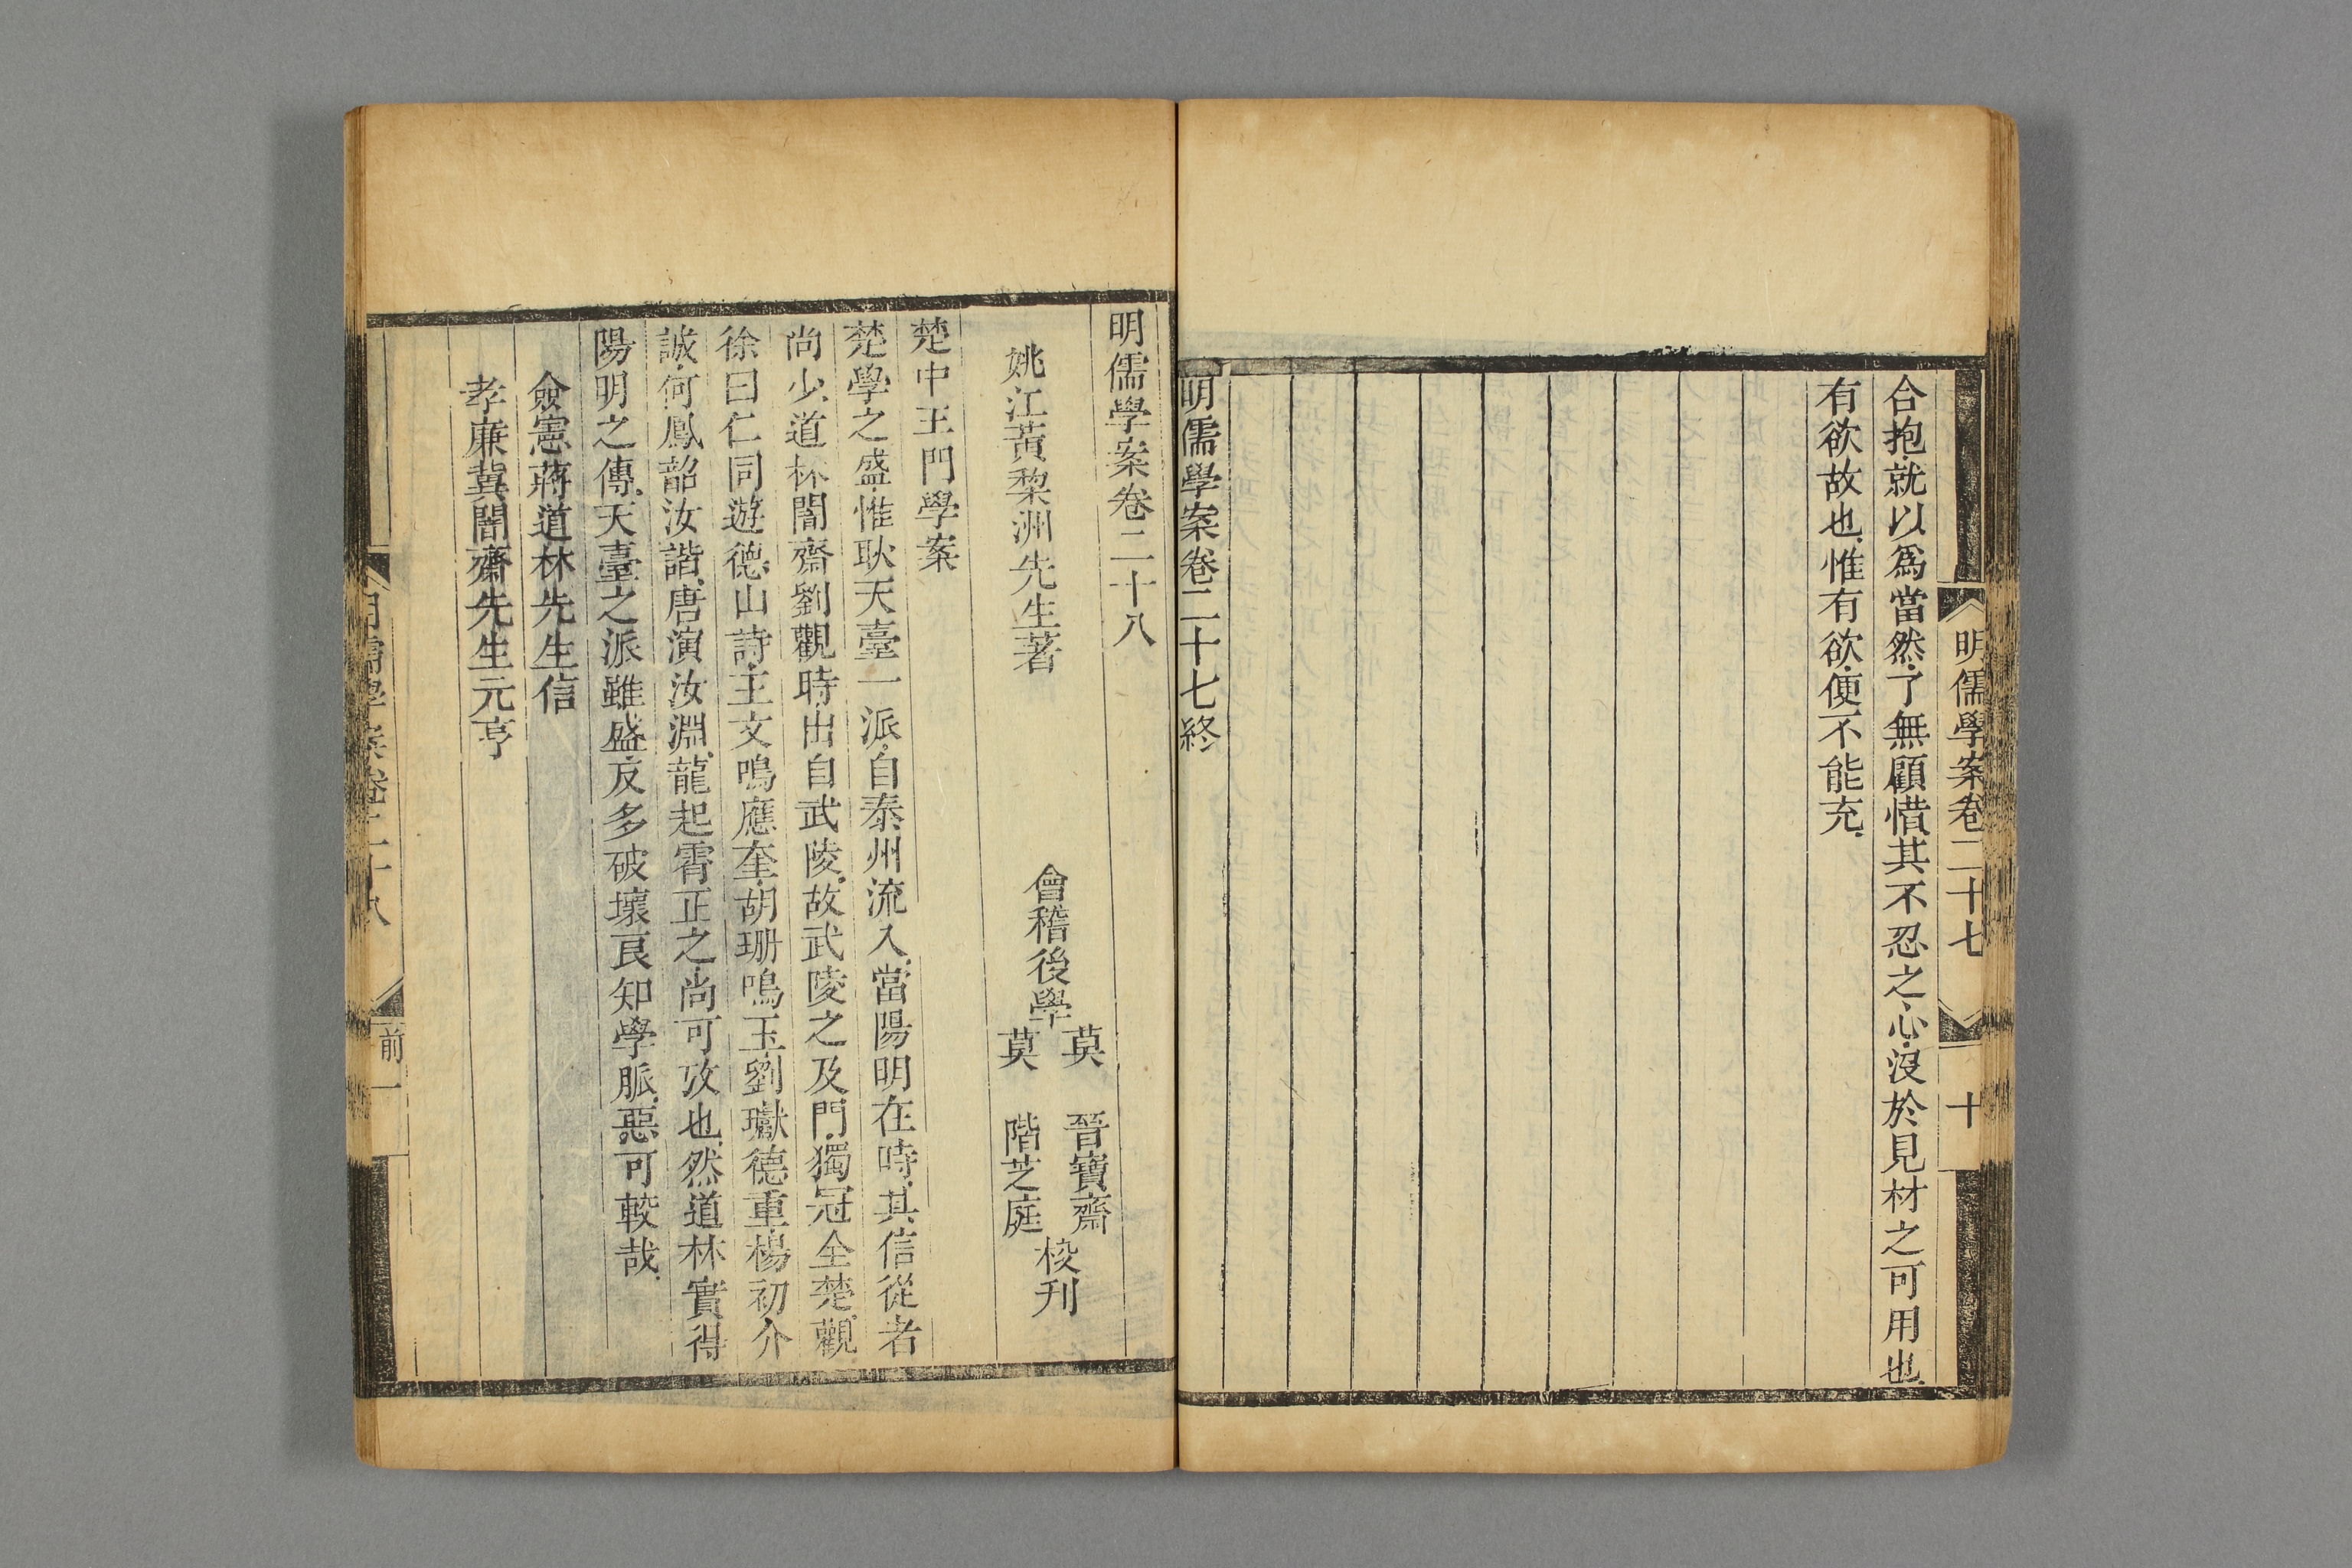 明儒學案卷二十七
十
合抱、就以爲當然、了無顧惜、其不忍之心、沒於見材之可用也、
有欲故也、惟有欲、便不能充、
明儒學案卷二十七終
明儒學案卷二十八
姚江黃棃洲先生著
會稽後學
莫　晉寶齋
莫　階芝庭
校刊
楚中王門學案
楚學之盛、惟耿天臺一派、自泰州流入、當陽明在時、其信從者
尚少、道林闇齋劉觀時、出自武陵、故武陵之及門、獨冠全楚、觀
徐曰仁同遊德山詩、王文鳴應奎、胡珊鳴玉、劉瓛德重、楊礿介
誠、何鳳韶汝諧、唐演汝淵、龍起霄止之、尚可攷也、然道林實得
陽明之傳、天臺之派雖盛、反多破壞良知學脈、惡可較哉、
僉憲蔣道林先生信
孝廉冀闇齋先生元亨
明儒學案卷二十八
前一